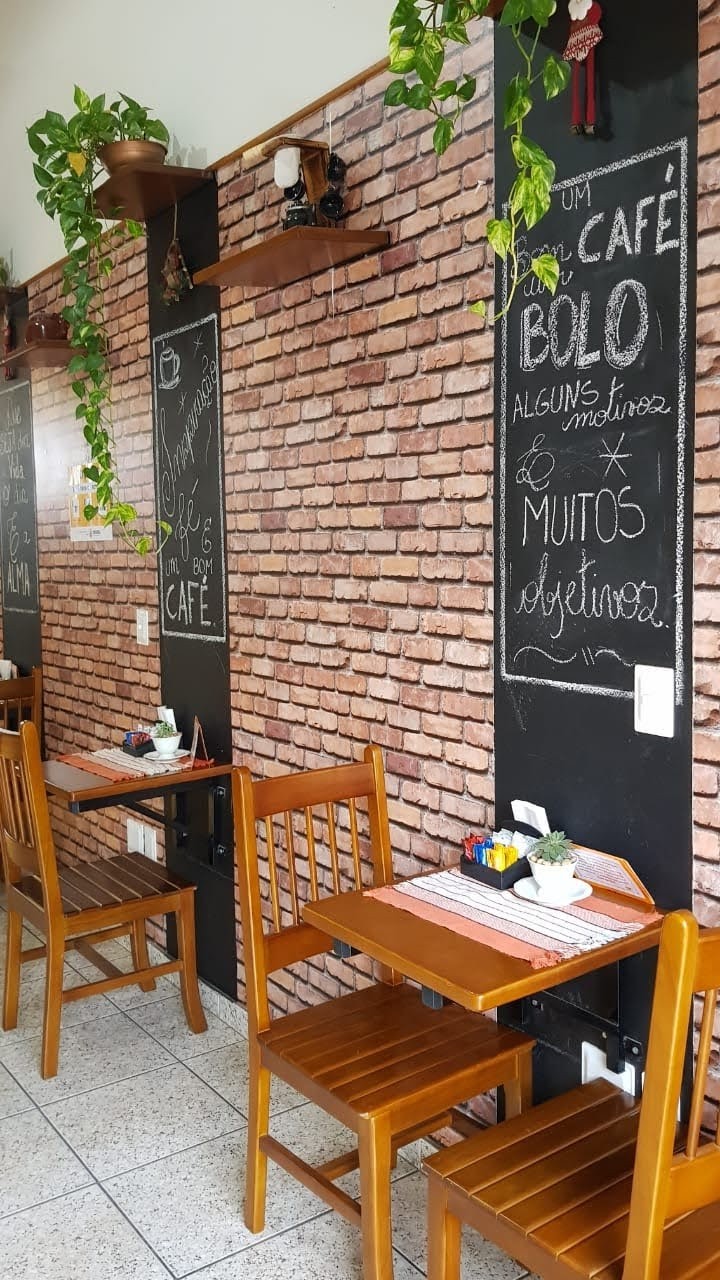 E
ALMA
Imaginação
fé
E
UM BOM
CAFÉ.
UM
Bom CAFÉ
um
BOLO
ALGUNS
motivos
E
MUITOS
objetivos.